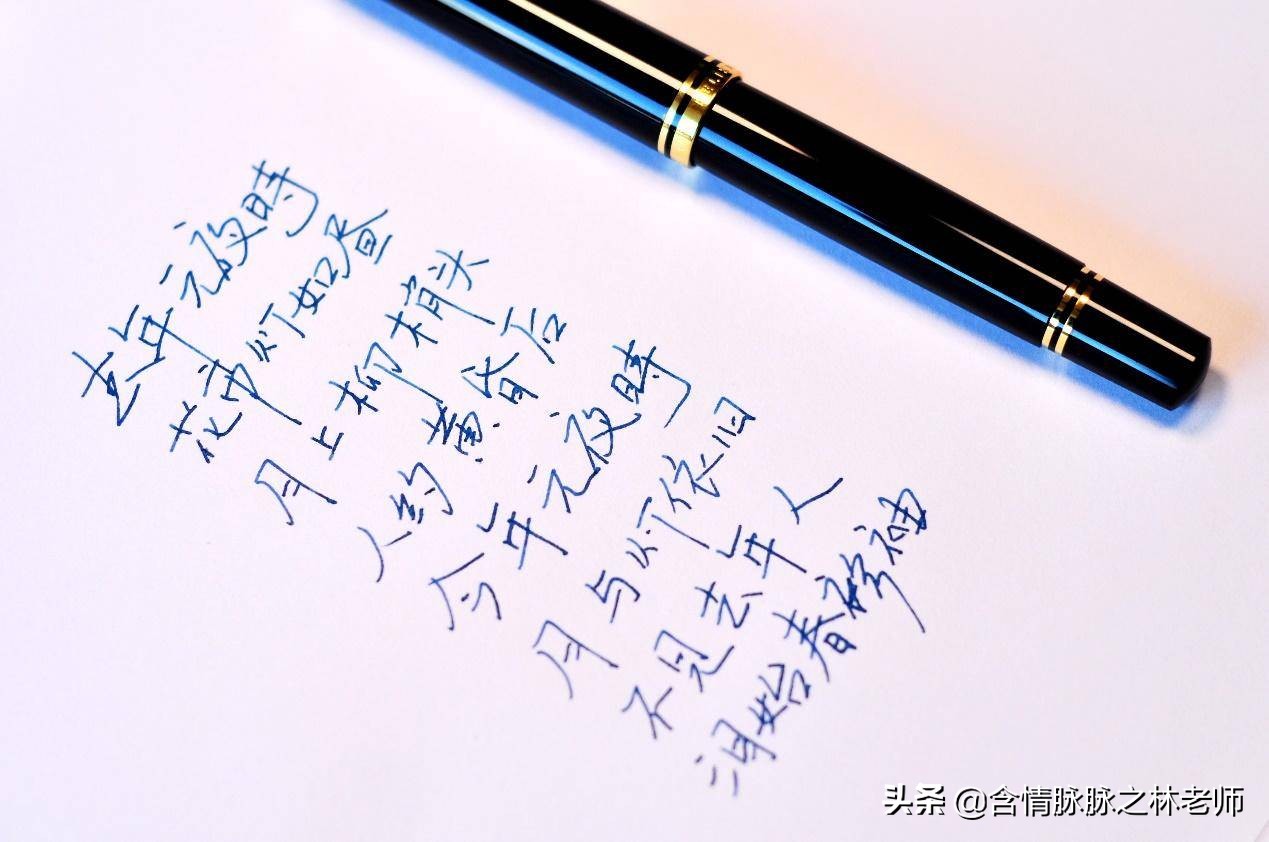 去年元夜時
花市灯如昼
月上柳梢头
人约黄昏后
今年元夜時
月与灯依旧
不见去年人
泪始春衫袖
头条 @含情脉脉之林老师